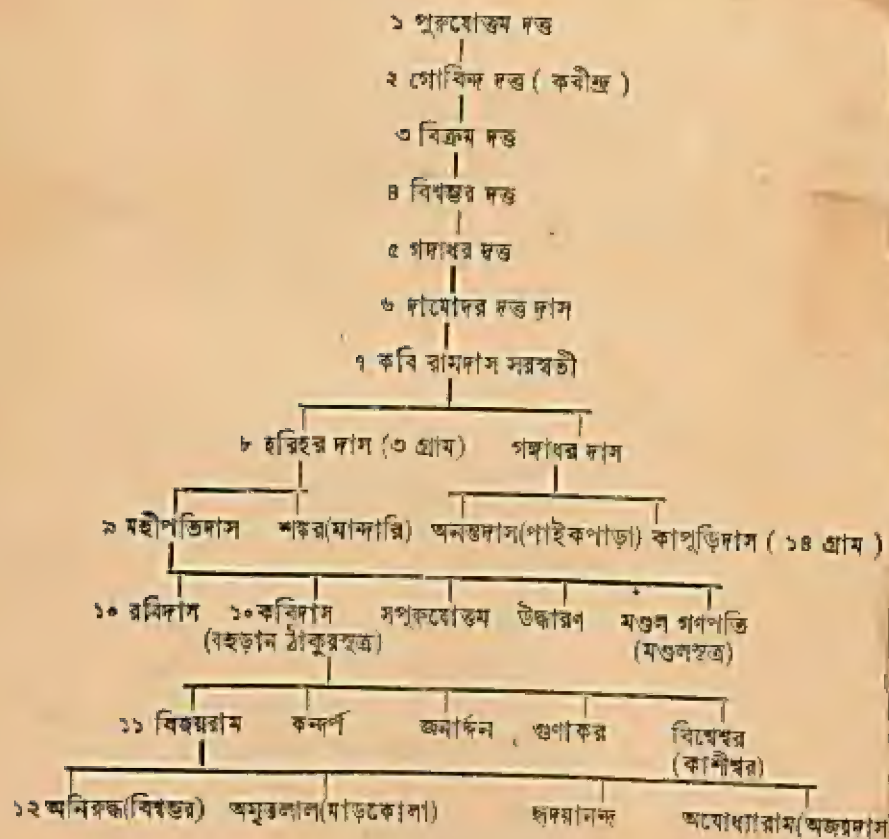 ১ পুরুষোত্তম দত্ত
২ গোবিন্দ দত্ত ( কবীন্দ্র )
৩ বিক্রম দত্ত
৪ বিশ্বম্ভর দত্ত
৫ গদাধর দত্ত
৬ দামোদর দত্ত দাস
৭ কবি রামদাস সরস্বতী
৮ হরিহর দাস (৩ গ্রাম) গঙ্গাধর দাস
৯ মহীপতিদাস শঙ্কর(মান্দারি) অনন্তদাস(পাইকপাড়া) কাপুড়িদাস ( ১৪ গ্রাম )
১০ রবিদাস ১০ কবিদাস সপুরুষোত্তম উদ্ধারণ মণ্ডল গণপতি
(বহড়ান ঠাকুরসূত্র) (মণ্ডলসূত্র)
১১ বিজয়রাম কন্দর্প জনার্দ্দন গুণাকর বিশ্বেশ্বর
(কাশীশ্বর)
১২ অনিরুদ্ধ(বিশ্বম্ভর) অমৃতলাল(মাড়কোলা) হৃদয়ানন্দ অযোধ্যারাম(অজয়দাস